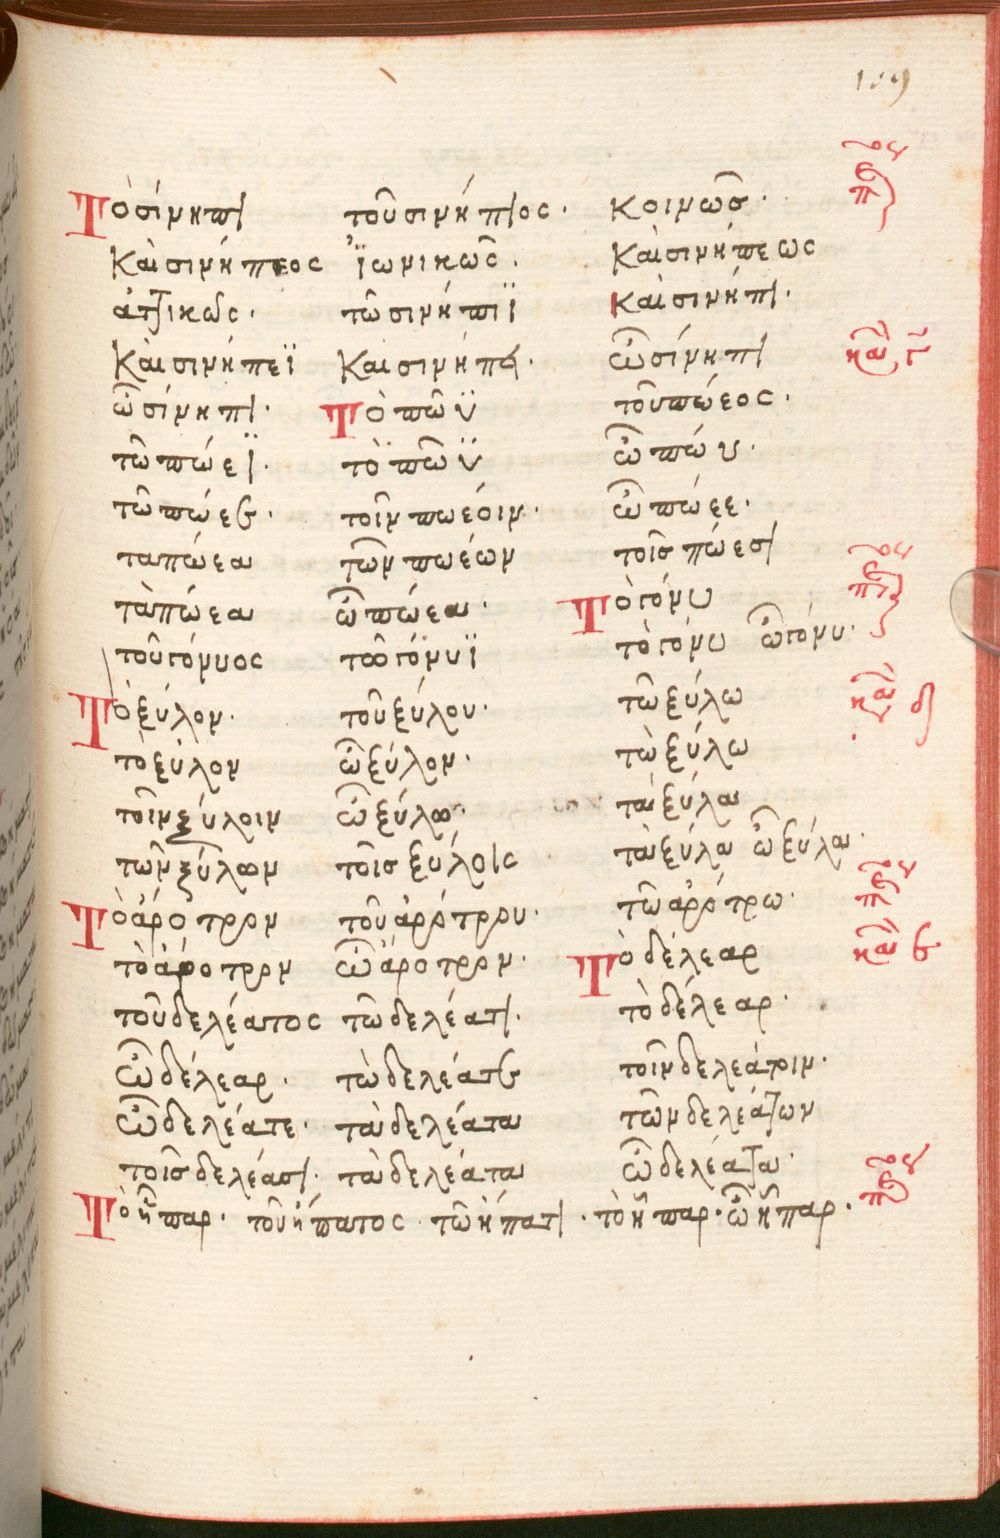 109
Τὸ σίνηπι τοῦ σινήπιος · κοινῶς ·
καὶ σινήπεος ἰωνικῶς · καὶ σινήπεως
ἀττικῶς · τῶ σινήπιϊ καὶ σινήπι ·
καὶ σινήπεϊ καὶ σινήπει · ὦ σίνηπι
ὦ σίνηπι · Τὸ πῶϋ τοῦ πώεος ·
τῶ πώεϊ · τὸ πῶϋ ὦ πώυ ·
τὼ πώεε · τοῖν πωέοιν · ὦ πώεε ·
τὰ πώεα τῶν πωέων τοῖς πώεσι
τὰ πώεα ὦ πώεα · Τὸ γόνυ
τοῦ γόνυος τῶ γόνυϊ τὸ γόνυ ὦ γόνυ ·
Τὸ ξύλον · τοῦ ξύλου · τῶ ξύλω
τὸ ξύλον ὦ ξύλον · τὼ ξύλω
τοῖν ξύλοιν ὦ ξύλω · τὰ ξύλα
τῶν ξύλων τοῖς ξύλοις τὰ ξύλα ὦ ξύλα ·
Τὸ ἄροτρον τοῦ ἀρότρου · τῶ ἀρότρω ·
τὸ ἄροτρον ὦ ἄροτρον · Τὸ δέλεαρ
τοῦ δελέατος τῶ δελέατι · τὸ δέλεαρ ·
ὦ δέλεαρ · τὼ δελέατε τοῖν δελεάτοιν ·
ὦ δελέατε · τὰ δελέατα τῶν δελεάτων
τοῖς δελέασι · τὰ δελέατα ὦ δελέατα ·
Τὸ ἧπαρ · τοῦ ἥπατος τῶ ἥπατι · τὸ ἧπαρ · ὦ ἧπαρ ·